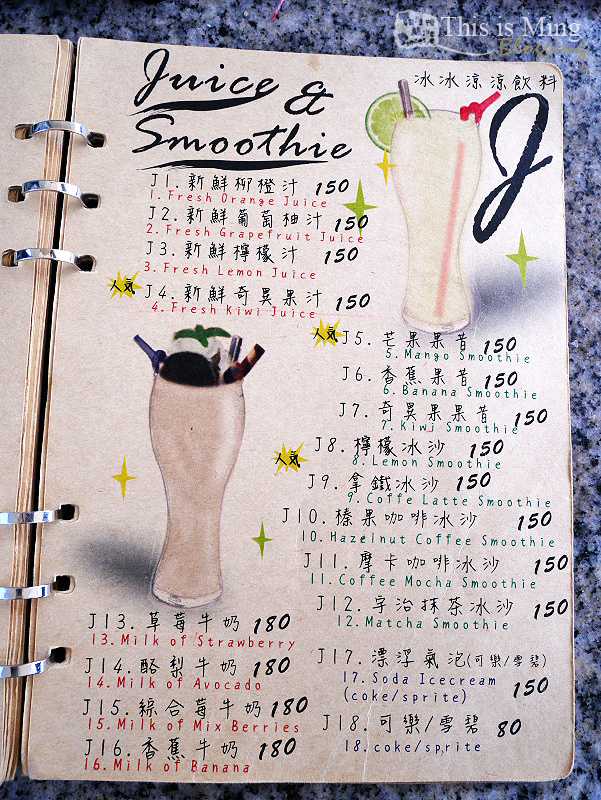 This is Ming
Blogging
Juice &
Smoothie
冰冰涼涼飲料
J
J1.新鮮柳橙汁 150
1.Fresh Orange Juice
J2.新鮮葡萄柚汁 150
2.Fresh Grapefruit Juice
J3.新鮮檸檬汁 150
3.Fresh Lemon Juice
人氣 J4.新鮮奇異果汁 150
4.Fresh Kiwi Juice
人氣 J5.芒果果昔 150
5.Mango Smoothie
J6.香蕉果昔 150
6.Banana Smoothie
J7.奇異果果昔 150
7.Kiwi Smoothie
人氣 J8.檸檬冰沙 150
8.Lemon Smoothie
J9.拿鐵冰沙 150
9.Coffe Latte Smoothie
J10.榛果咖啡冰沙 150
10.Hazelnut Coffee Smoothie
J11.摩卡咖啡冰沙 150
11.Coffee Mocha Smoothie
J12.宇治抹茶冰沙 150
12.Matcha Smoothie
J13.草莓牛奶 180
13.Milk of Strawberry
J14.酪梨牛奶 180
14.Milk of Avocado
J15.綜合莓牛奶 180
15.Milk of Mix Berries
J16.香蕉牛奶 180
16.Milk of Banana
J17.漂浮氣泡(可樂/雪碧)
17.Soda Icecream
(coke/sprite) 150
J18.可樂/雪碧 80
18.coke/sprite